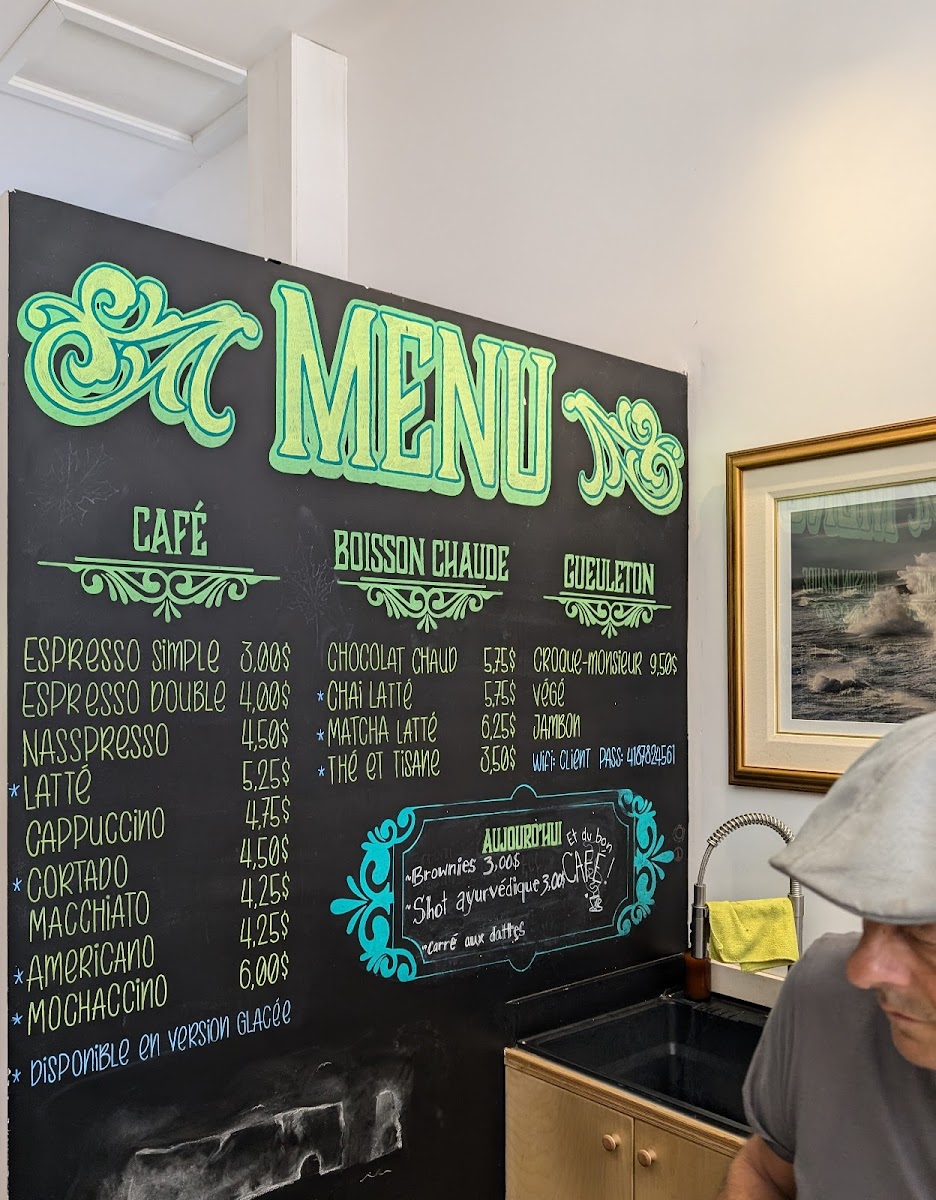 MENU
CAFÉ
ESPRESSO SIMPLE 3,00$
ESPRESSO DOUBLE 4,00$
NASSPRESSO 4,50$
* LATTÉ 5,25$
CAPPUCCINO 4,75$
* CORTADO 4,50$
MACCHIATO 4,25$
* AMERICANO 4,25$
* MOCHACCINO 6,00$
* DISPONIBLE EN VERSION GLACÉE
BOISSON CHAUDE
CHOCOLAT CHAUD 5,75$
* CHAI LATTÉ 5,75$
* MATCHA LATTÉ 6,25$
* THÉ ET TISANE 3,50$
GUEULETON
CROQUE-MONSIEUR 9,50$
VÉGÉ
JAMBON
WIFI: CLIENT PASS: 4187824561
AUJOURD'HUI
~Brownies 3,00$
~Shot ayurvédiique 3.00$
~carré aux dattes
Et du bon
CAFÉ!